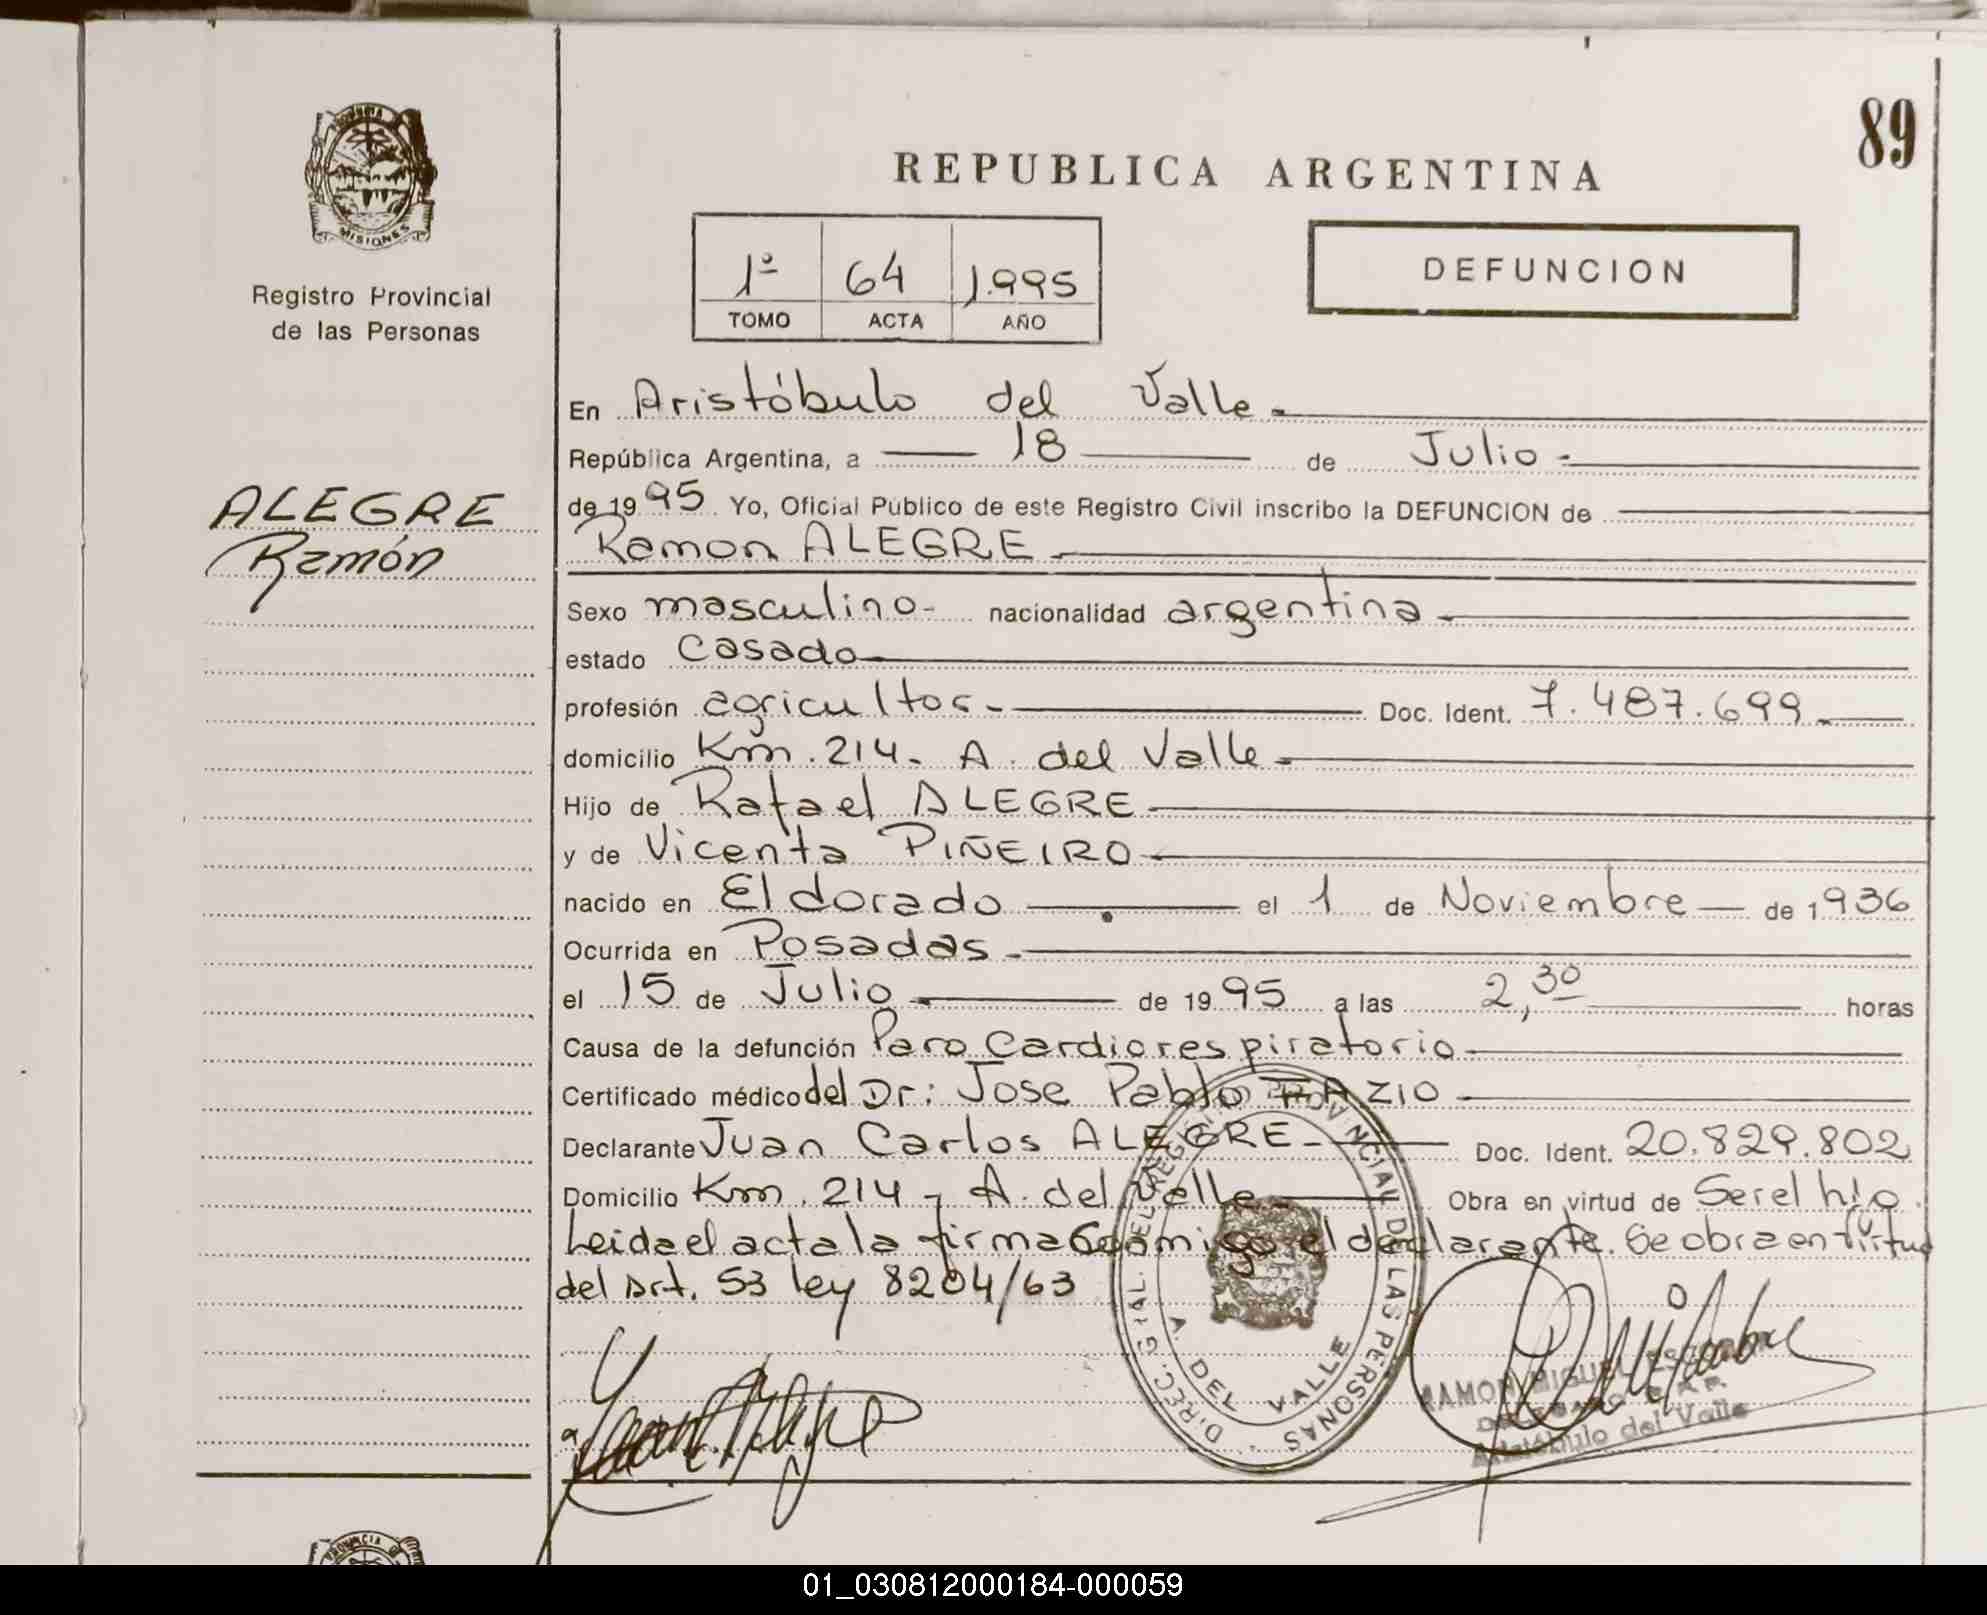 89
PROVINCIA
MISIONES
Registro Provincial
de las Personas
REPUBLICA ARGENTINA
1º 64 1.995
TOMO ACTA AÑO
DEFUNCION
ALEGRE
Ramón
En Aristóbulo del Valle.
República Argentina, a 18 de Julio.
de 1995 Yo, Oficial Público de este Registro Civil inscribo la DEFUNCION de
Ramon ALEGRE
Sexo masculino- nacionalidad argentina
estado Casado
profesión agricultor- Doc. Ident. 7.487.699.
domicilio Km. 214- A. del Valle
Hijo de Rafael ALEGRE
y de Vicenta PIÑEIRO
nacido en Eldorado el 1 de Noviembre de 1936
Ocurrida en Posadas.
el 15 de Julio de 1995 a las 2,30 horas
Causa de la defunción Paro Cardiorespiratorio
Certificado médico del Dr: Jose Pablo FAZIO
Declarante Juan Carlos ALEGRE- Doc. Ident. 20.829.802
Domicilio Km. 214- A. del Valle Obra en virtud de Ser el hijo.
Leida el acta la firma Conmigo el declarante. Se obra en virtud
del Art. 53 ley 8204/63
DIREC. GRAL. DEL REGISTRO PROVINCIAL DE LAS PERSONAS
A. DEL VALLE
RAMON MIGUEL
Aristóbulo del Valle
PROVINCIA DE
01_030812000184-000059